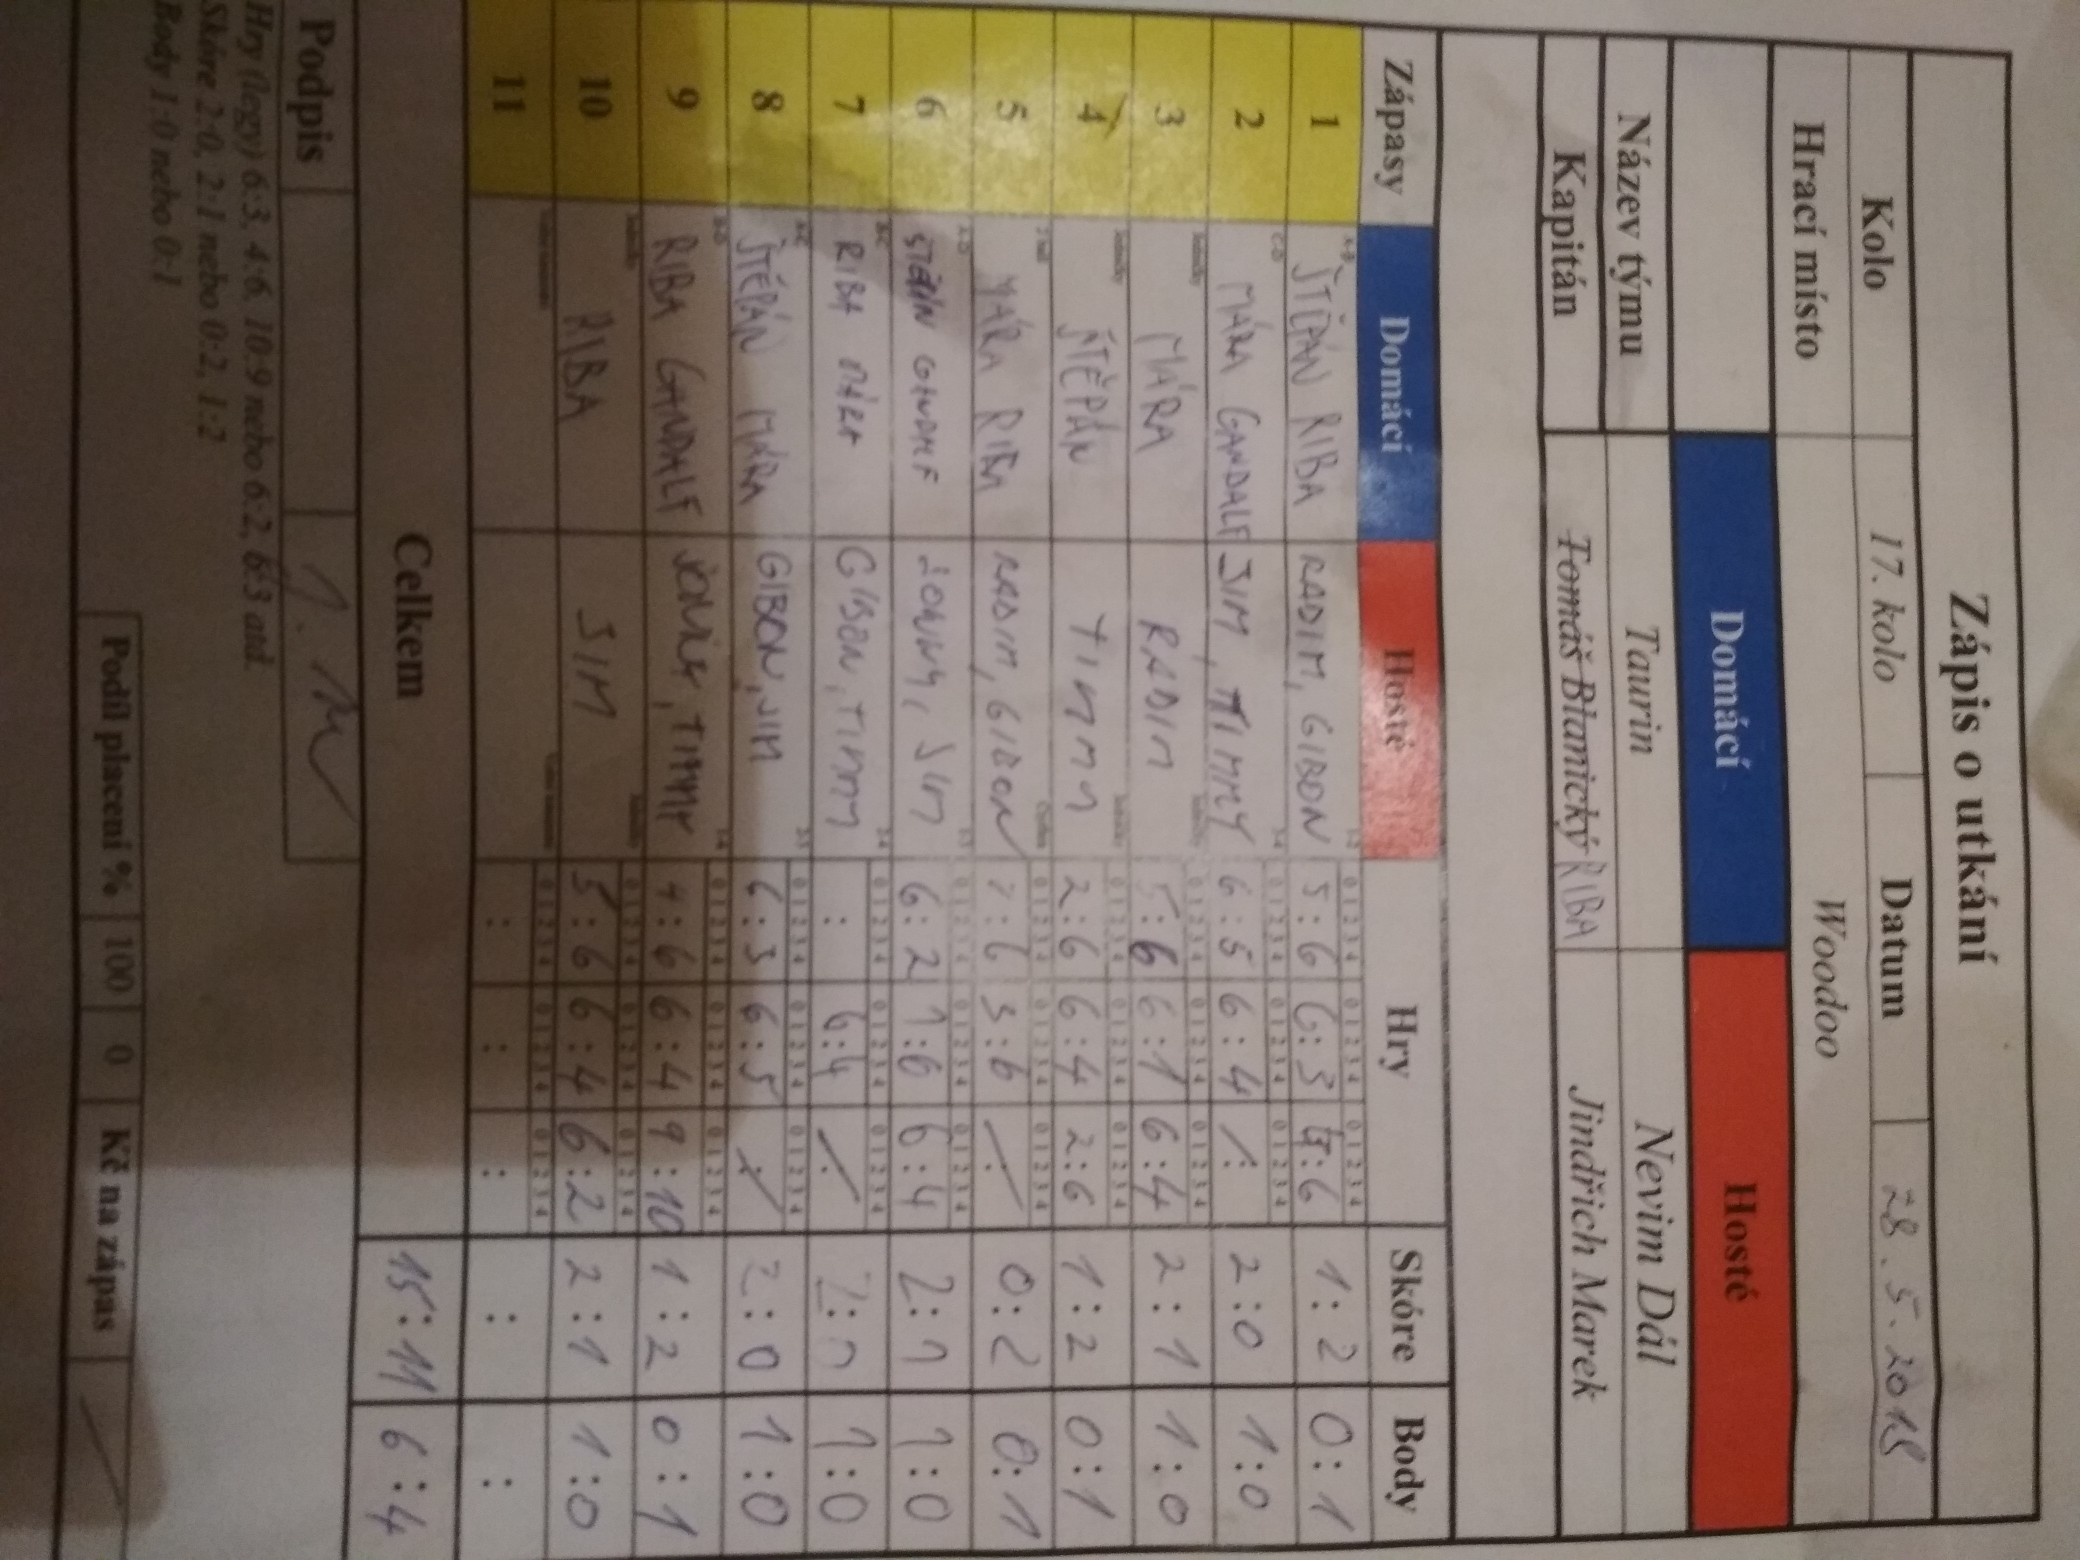 Zápis o utkání
Kolo 17. kolo Datum 28. 5. 2018
Hrací místo Woodoo
Domácí Hosté
Název týmu Taurin Nevim Dál
Kapitán Tomáš Blanický RIBA Jindřich Marek
Zápasy Domácí Hosté Hry Skóre Body
1 ŠTĚPÁN RIBA RADIM, GIBON 5:6 6:3 4:6 1:2 0:1
2 MÁRA GANDALF JIM, TIMMY 6:5 6:4 2:0 1:0
3 MÁRA RADIM 5:6 6:1 6:4 2:1 1:0
4 ŠTĚPÁN TIMMY 2:6 6:4 2:6 1:2 0:1
5 MÁRA RIBA RADIM, GIBON :6 3:6 0:2 0:1
6 ŠTĚPÁN GANDALF JOHNY, JIM 6:2 1:6 6:4 2:1 1:0
7 RIBA MÁRA GIBON, TIMMY : 6:4 2: 1:0
8 ŠTĚPÁN MÁRA GIBON, JIM 6:3 6:5 2:0 1:0
9 RIBA GANDALF TIMMY 4:6 6:4 9:10 1:2 0:1
10 RIBA JIM 5:6 6:4 6:2 2:1 1:0
11 : : : : :
Celkem 15:11 6:4
Podpis
Hry (legy) 6:3, 4:6, 10:9 nebo 6:2, 6:3 atd.
Skóre 2:0, 2:1 nebo 0:2, 1:2
Body 1:0 nebo 0:1
Podíl placení % 100 0 Kč na zápas